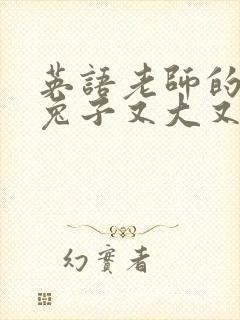 英語老師的
兔子又大又
幻實者